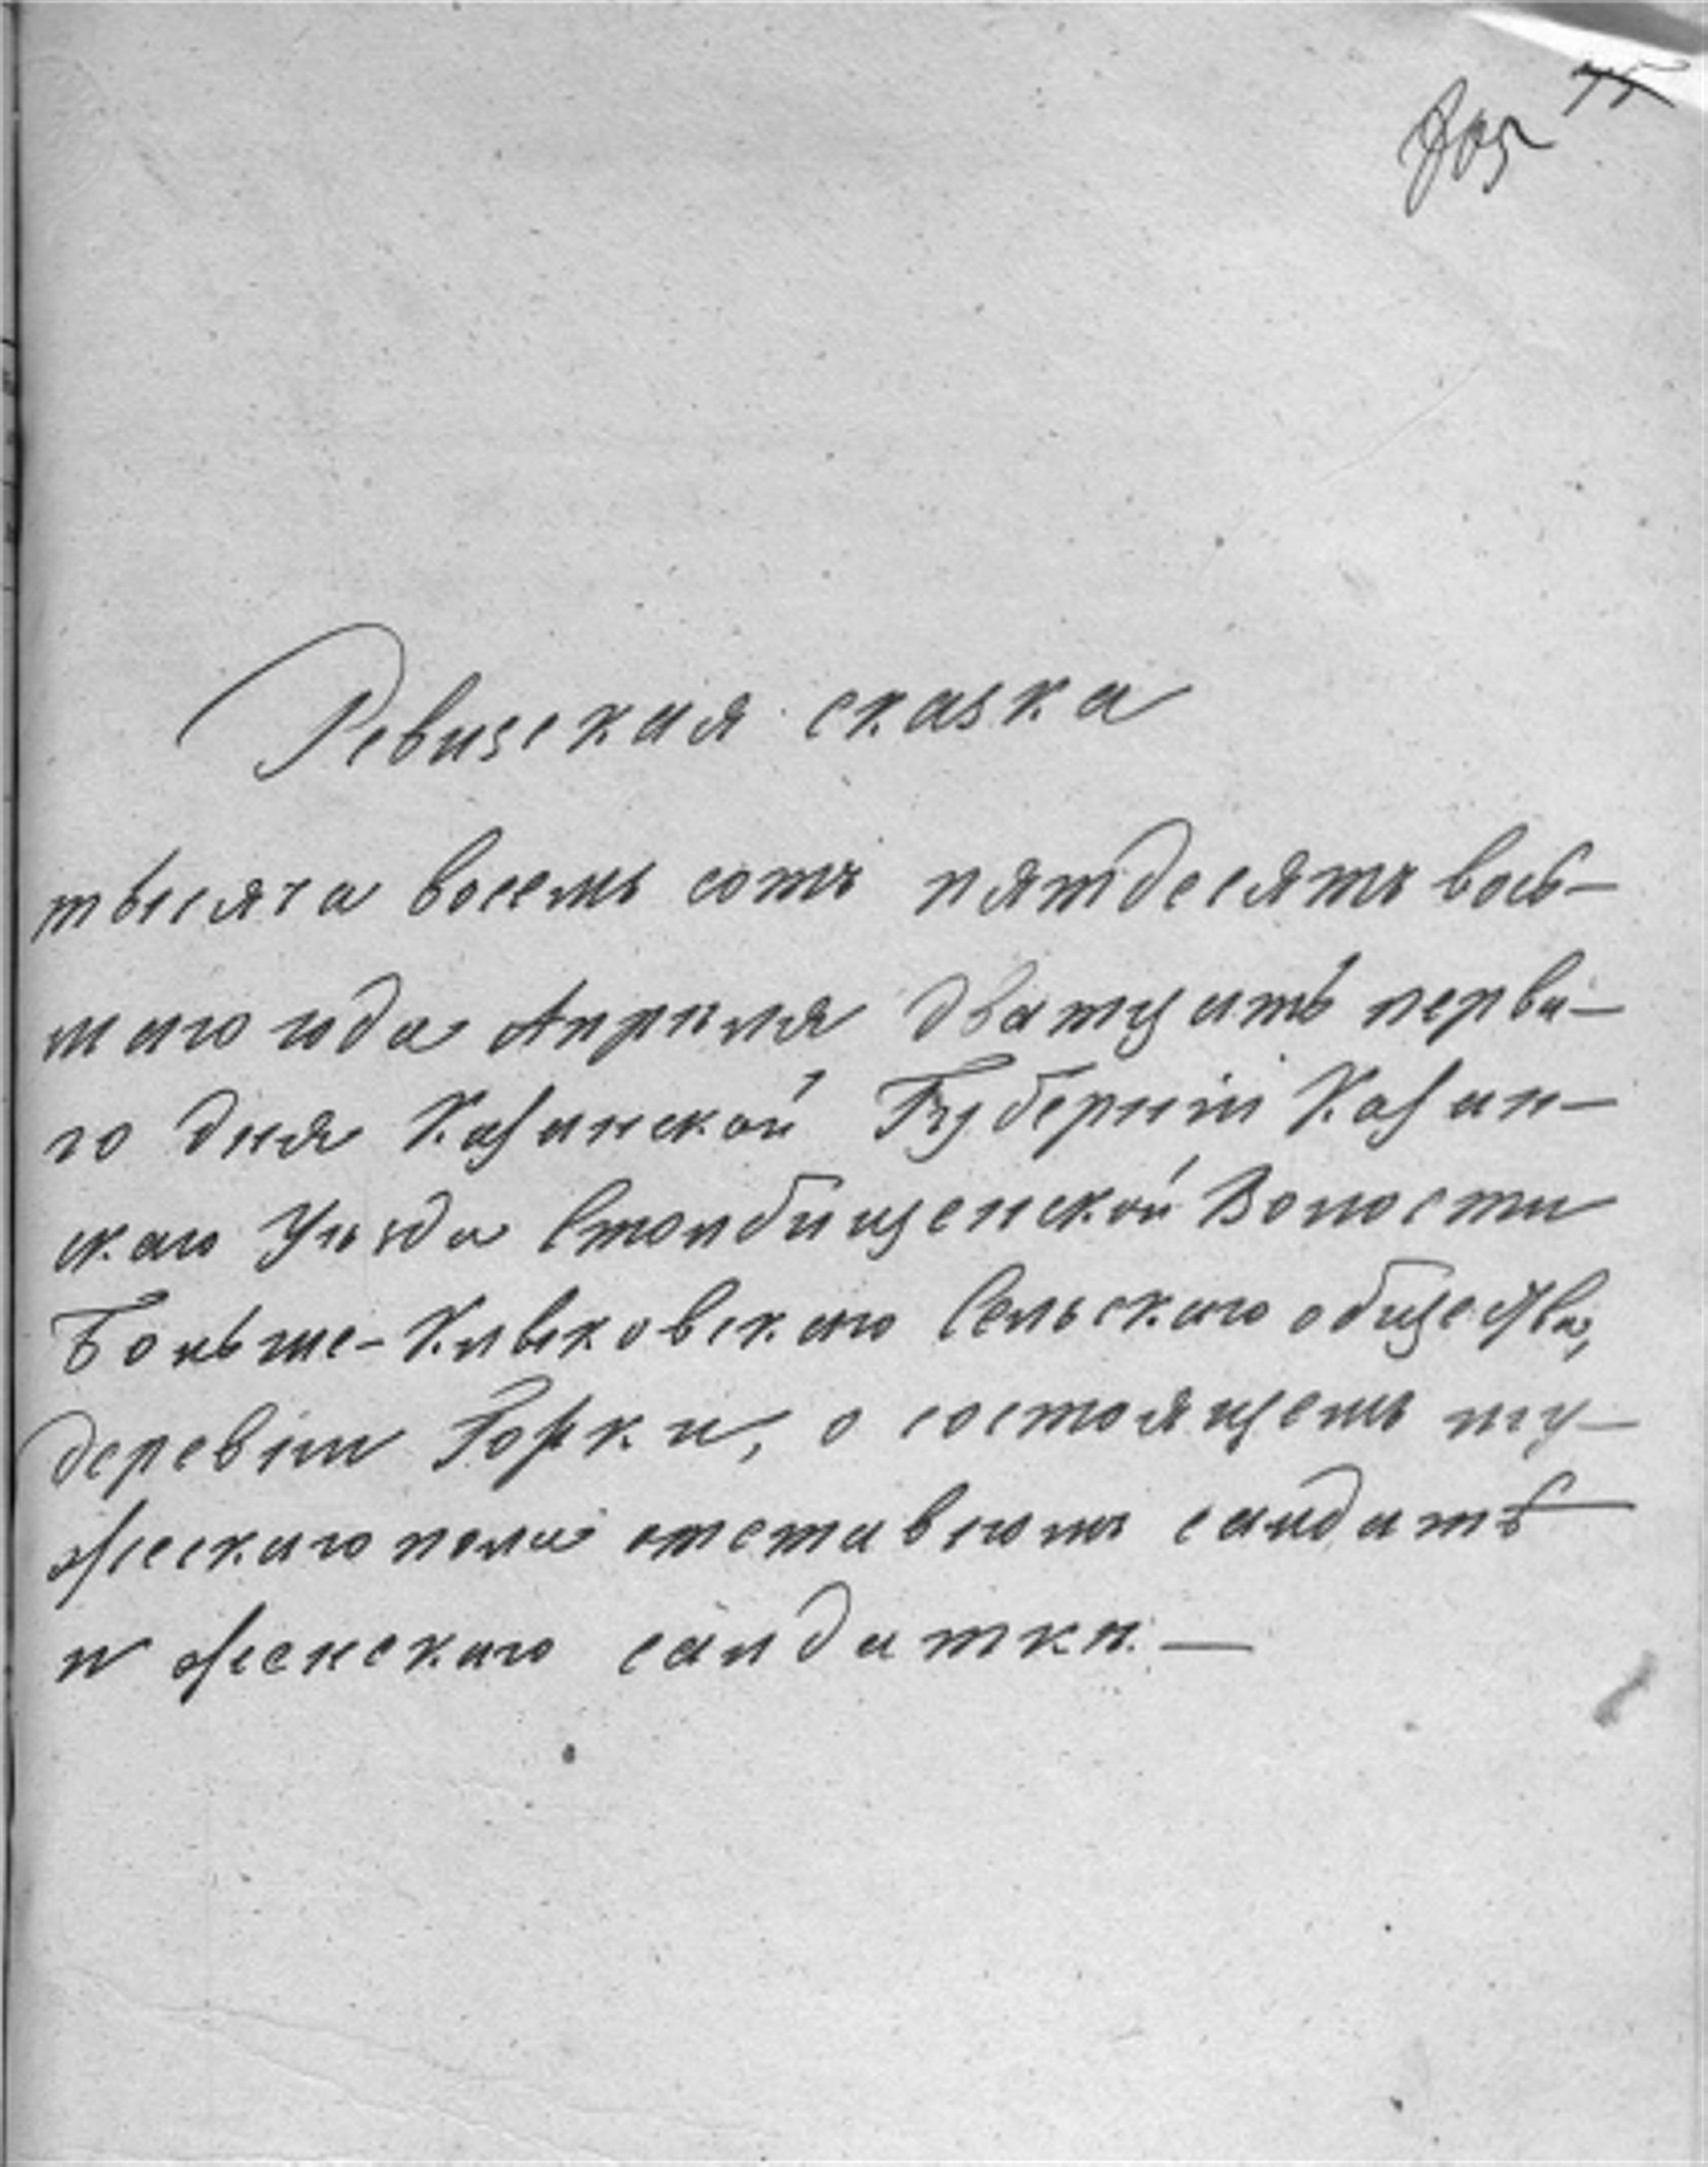 Ревизская сказка
тысяча восемь сотъ пятдесятъ вось-
маго года Апреля дватцать перва-
го дня Казанской Губерніи Казан-
скаго Уезда Столбищенской Волости
Больше-Клыковскаго Сельскаго общества,
деревни Горки, о состоящемъ му-
жескаго пола отставномъ салдатѣ
и женскаго салдатки.—